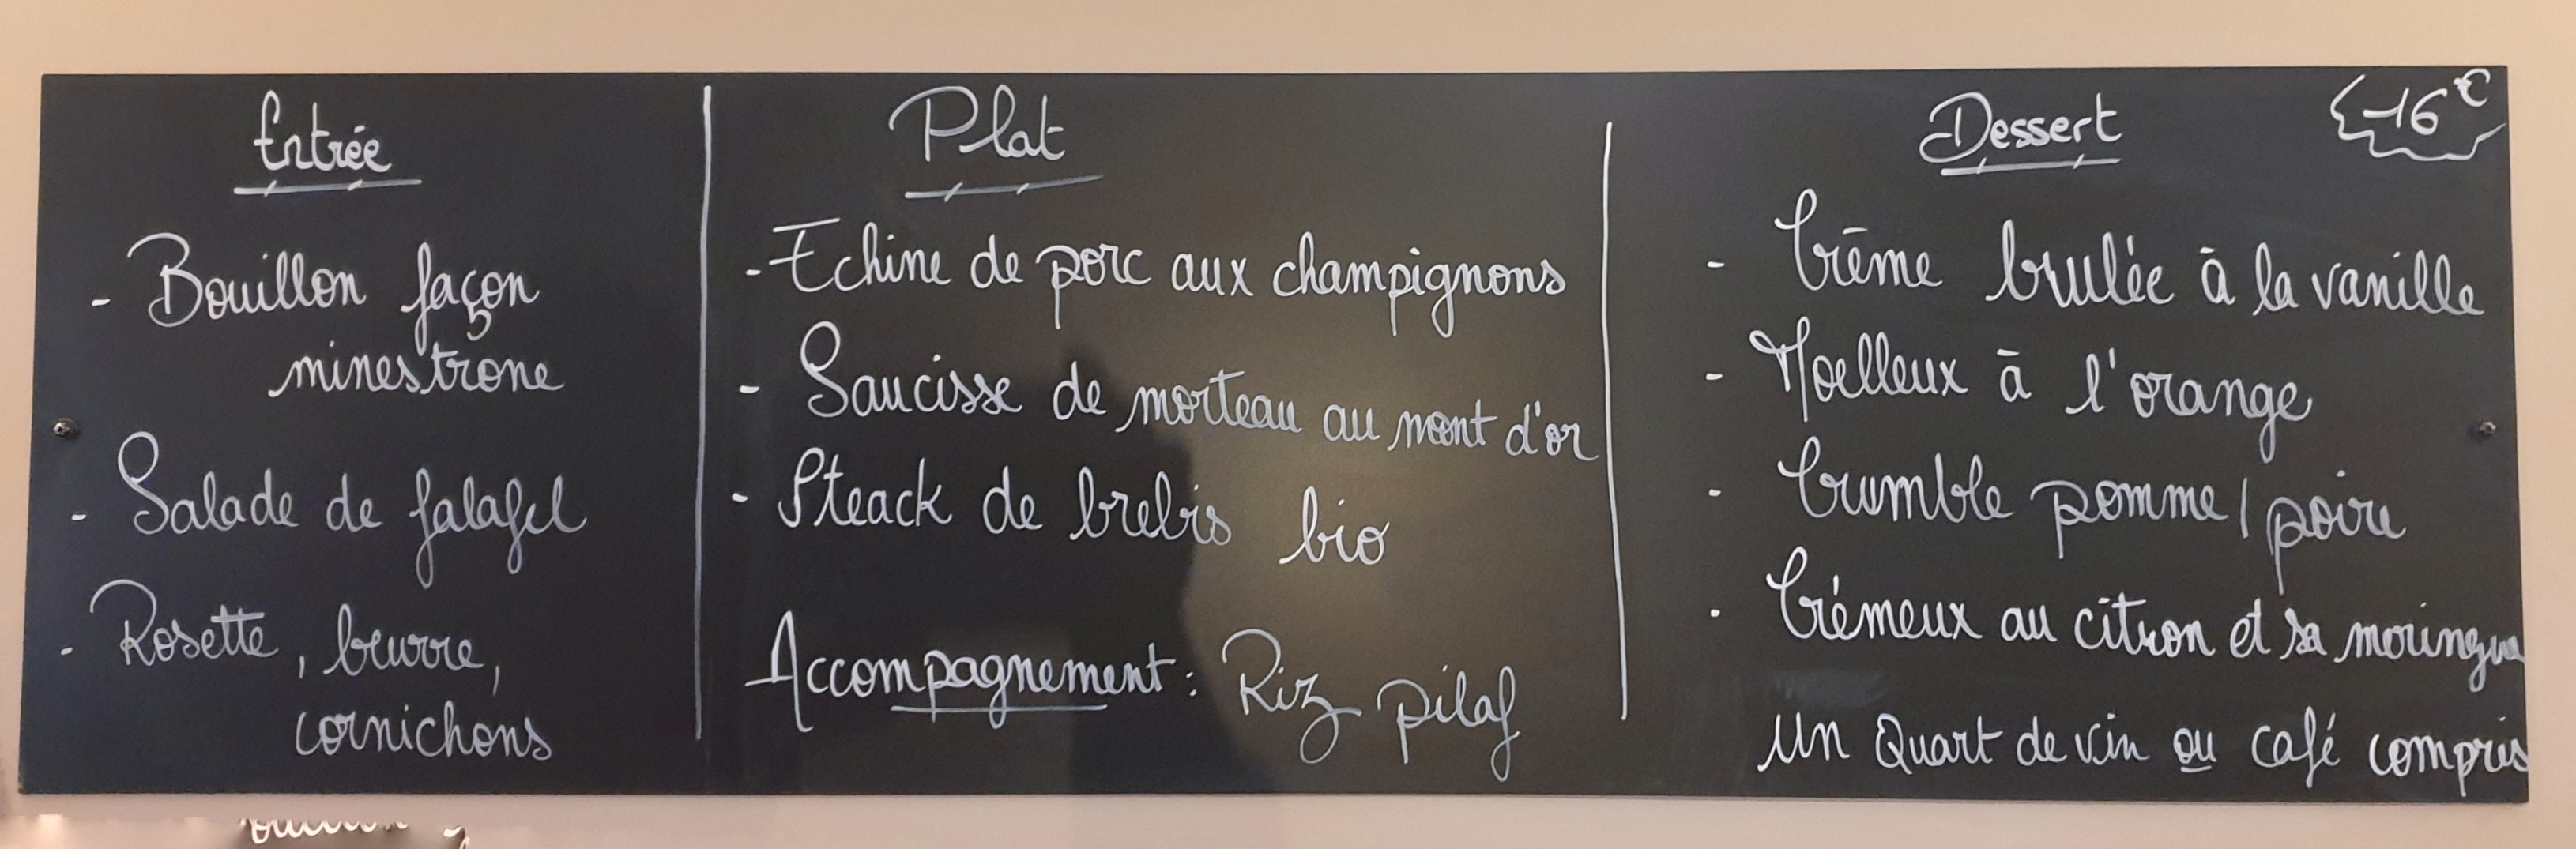 Entrée
- Bouillon façon
minestrone
- Salade de falafel
- Rosette, beurre,
cornichons
Plat
- Echine de porc aux champignons
- Saucisse de morteau au mont d'or
- Steack de brebis bio
Accompagnement : Riz pilaf
Dessert
16€
- Crème brulée à la vanille
- Moelleux à l'orange
- Crumble pomme / poire
- Crémeux au citron et sa moringue
Un Quart de vin ou café compris